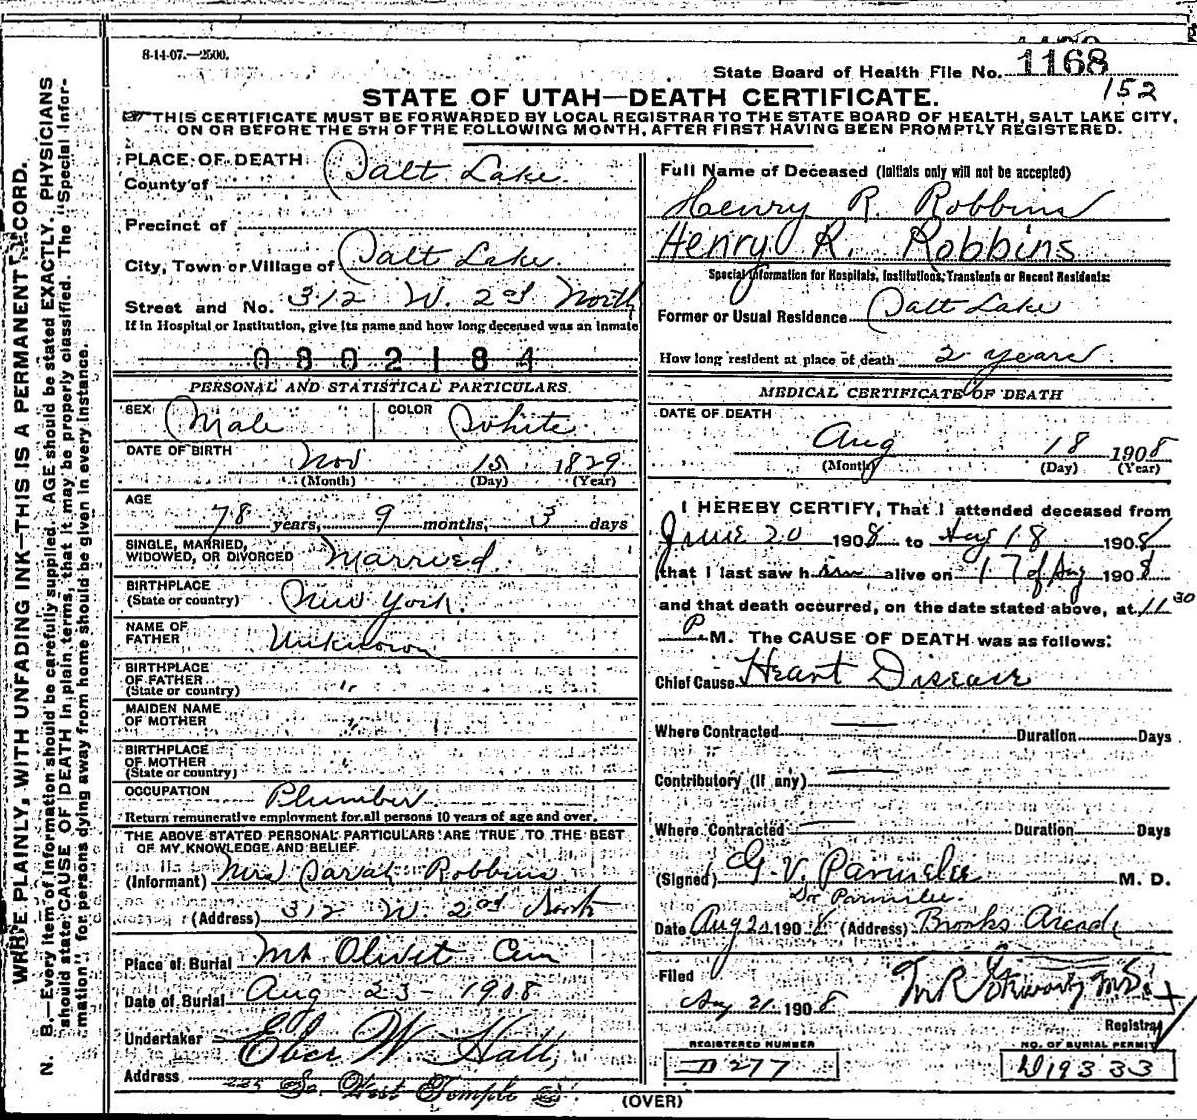 8-14-07.—2500.
State Board of Health File No. 1168
152
STATE OF UTAH—DEATH CERTIFICATE.
THIS CERTIFICATE MUST BE FORWARDED BY LOCAL REGISTRAR TO THE STATE BOARD OF HEALTH, SALT LAKE CITY,
ON OR BEFORE THE 5TH OF THE FOLLOWING MONTH, AFTER FIRST HAVING BEEN PROMPTLY REGISTERED.
WRITE PLAINLY, WITH UNFADING INK—THIS IS A PERMANENT RECORD.
N. B.—Every item of information should be carefully supplied. AGE should be stated EXACTLY. PHYSICIANS
should state CAUSE OF DEATH in plain terms, that it may be properly classified. The "Special Infor-
mation" for persons dying away from home should be given in every instance.
PLACE OF DEATH
County of Salt Lake
Precinct of
City, Town or Village of Salt Lake
Street and No. 312 W. 2nd North
If in Hospital or Institution, give its name and how long deceased was an inmate
0802184
PERSONAL AND STATISTICAL PARTICULARS.
SEX Male COLOR White
DATE OF BIRTH Nov 15 1829
(Month) (Day) (Year)
AGE
78 years, 9 months, 3 days
SINGLE, MARRIED,
WIDOWED, OR DIVORCED Married.
BIRTHPLACE
(State or country) New York.
NAME OF
FATHER Unknown
BIRTHPLACE
OF FATHER
(State or country) "
MAIDEN NAME
OF MOTHER "
BIRTHPLACE
OF MOTHER
(State or country) "
OCCUPATION Plumber
Return remunerative employment for all persons 10 years of age and over.
THE ABOVE STATED PERSONAL PARTICULARS ARE TRUE TO THE BEST
OF MY KNOWLEDGE AND BELIEF.
(Informant) Mrs Sarah Robbins
(Address) 312 W. 2nd North
Place of Burial Mt Olivet Cem
Date of Burial Aug 23 - 1908
Undertaker Eber W. Hall,
Address 225 So. West Temple St
Full Name of Deceased (Initials only will not be accepted)
Henry R. Robbins
Henry R. Robbins
Special Information for Hospitals, Institutions, Transients or Recent Residents:
Former or Usual Residence Salt Lake
How long resident at place of death 2 years.
MEDICAL CERTIFICATE OF DEATH
DATE OF DEATH
Aug 18 1908
(Month) (Day) (Year)
I HEREBY CERTIFY, That I attended deceased from
June 20 1908 to Aug 18 1908
that I last saw him alive on 17 of Aug 1908
and that death occurred, on the date stated above, at 11 30
P M. The CAUSE OF DEATH was as follows:
Chief Cause Heart Disease
Where Contracted Duration Days
Contributory (If any)
Where Contracted Duration Days
(Signed) G. V. Parmelee M. D.
Dr Parmelee.
Date Aug 20 1908 (Address) Brooks Arcade
Filed
Aug 21 1908
Registrar
REGISTERED NUMBER
D277
NO. OF BURIAL PERMIT
D19333
(OVER)